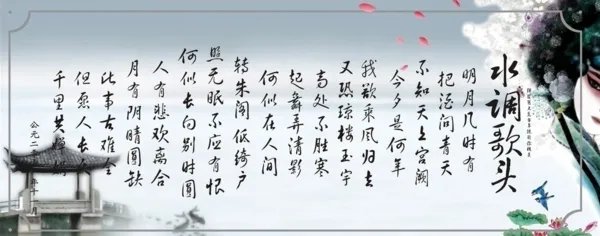 水调歌头
明月几时有
把酒问青天
不知天上宫阙
今夕是何年
我欲乘风归去
又恐琼楼玉宇
高处不胜寒
起舞弄清影
何似在人间
转朱阁低绮户
照无眠不应有恨
何似长向别时圆
人有悲欢离合
月有阴晴圆缺
此事古难全
但愿人长久
千里共
公元二
年十一月